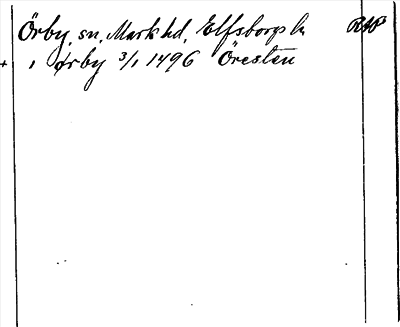 Örby, sn, Mark hd, Elfsborgs ln RAP
+ i Ørby 3/1 1496 Öresten